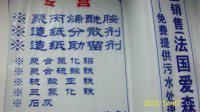 专营
※聚丙烯酰胺
※造纸分散剂
※造纸助留剂
※聚合氯化铝
※聚合硫酸铁
※硫酸亚铁
※三氯化铁
※石灰
销售法国爱森
免费提供污水处
2010/12/07